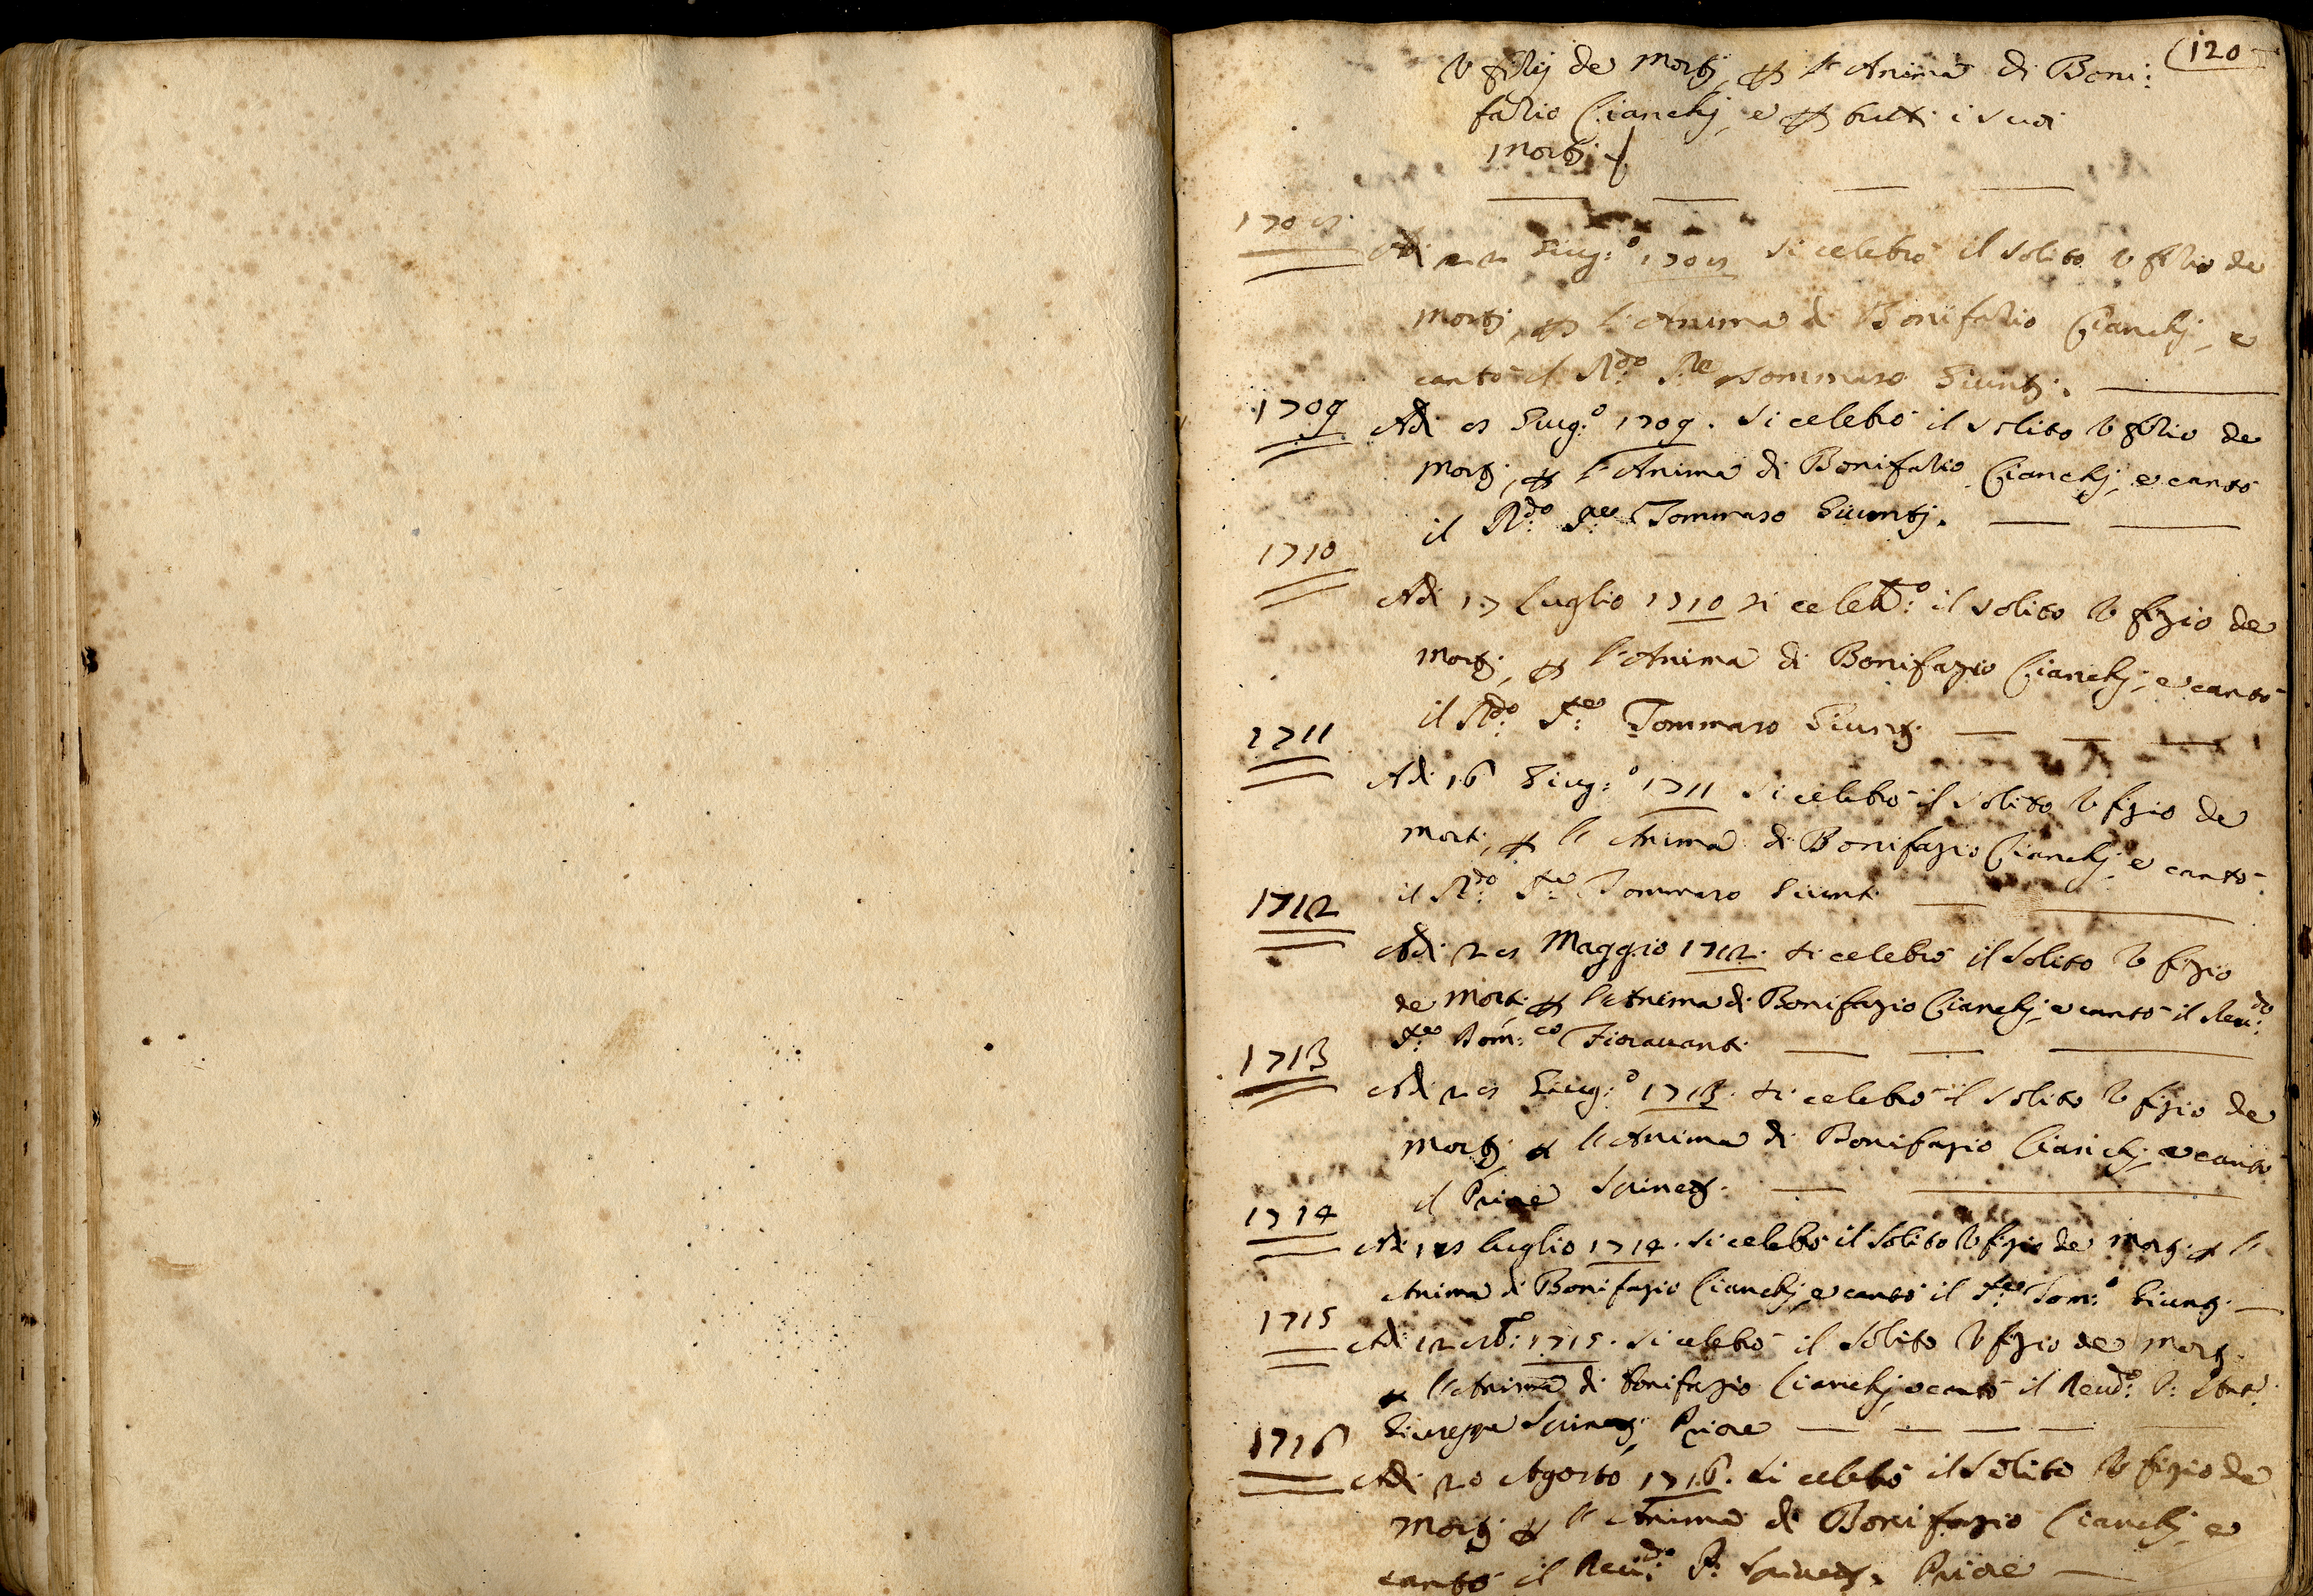 (120
Vfizij de Mortj, p l'Anima di Boni:
fazio Cianchj, e p tutti i suoi
Mortj.
1708
Adi 22 Giug:o 1708 si celebrò il solito Vfizio de
Mortj, p l'Anima di Bonifazio Cianchj, e
cantò il R:do P:re Tommaso Giuntj.
1709
Adi 8 Giug:o 1709. si celebrò il solito Vfizio de
Mortj, p l'Anima di Bonifazio Cianchj, e cantò
il R:do P:re Tommaso Giuntj.
1710
Adi 17 Luglio 1710 si celeb:o il solito Vfizio de
Mortj, p l'Anima di Bonifazio Cianchj, e cantò
il R:do P:re Tommaso Giuntj
1711
Adi 16 Giug:o 1711 si celebrò il solito Vfizio de
Morti, p l'Anima di Bonifazio Cianchj, e cantò
il R:do P:re Tommaso Giunti
1712
Adi 28 Maggio 1712. si celebrò il solito Vfizio
de Morti p l'Anima di Bonifazio Cianchj, e cantò il Reu:do
P:re Dom:co Fiorauanti
1713
Adi 28 Giug:o 1713. si celebrò il solito Vfizio de
Mortj p l'Anima di Bonifazio Cianchj, e cantò
il Priore
1714
Adi Luglio 1714. si celebrò il solito Vfizio de Mortj p l'
Anima di Bonifazio Cianchj, e cantò il P:re Tom:o Giuntj
1715
Adi 12 1715. si celebrò il solito Vfizio de Mortj
p l'Anima di Bonifazio Cianchj, e cantò il Reud:o P:
Giuseppe Priore
1716
Adi 20 Agosto 1716. si celebrò il solito Vfizio de
Mortj p l'Anima di Bonifazio Cianchj, e
cantò il Reu:do P: Priore